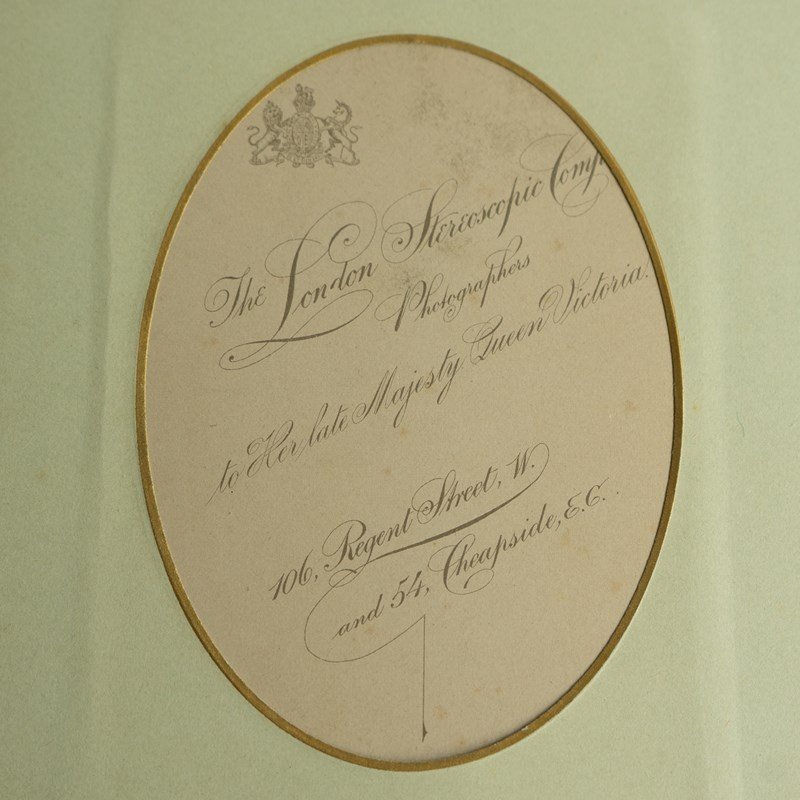 The London Stereoscopic Comp
Photographers
to Her late Majesty Queen Victoria.
106, Regent Street, W.
and 54, Cheapside, E.C.